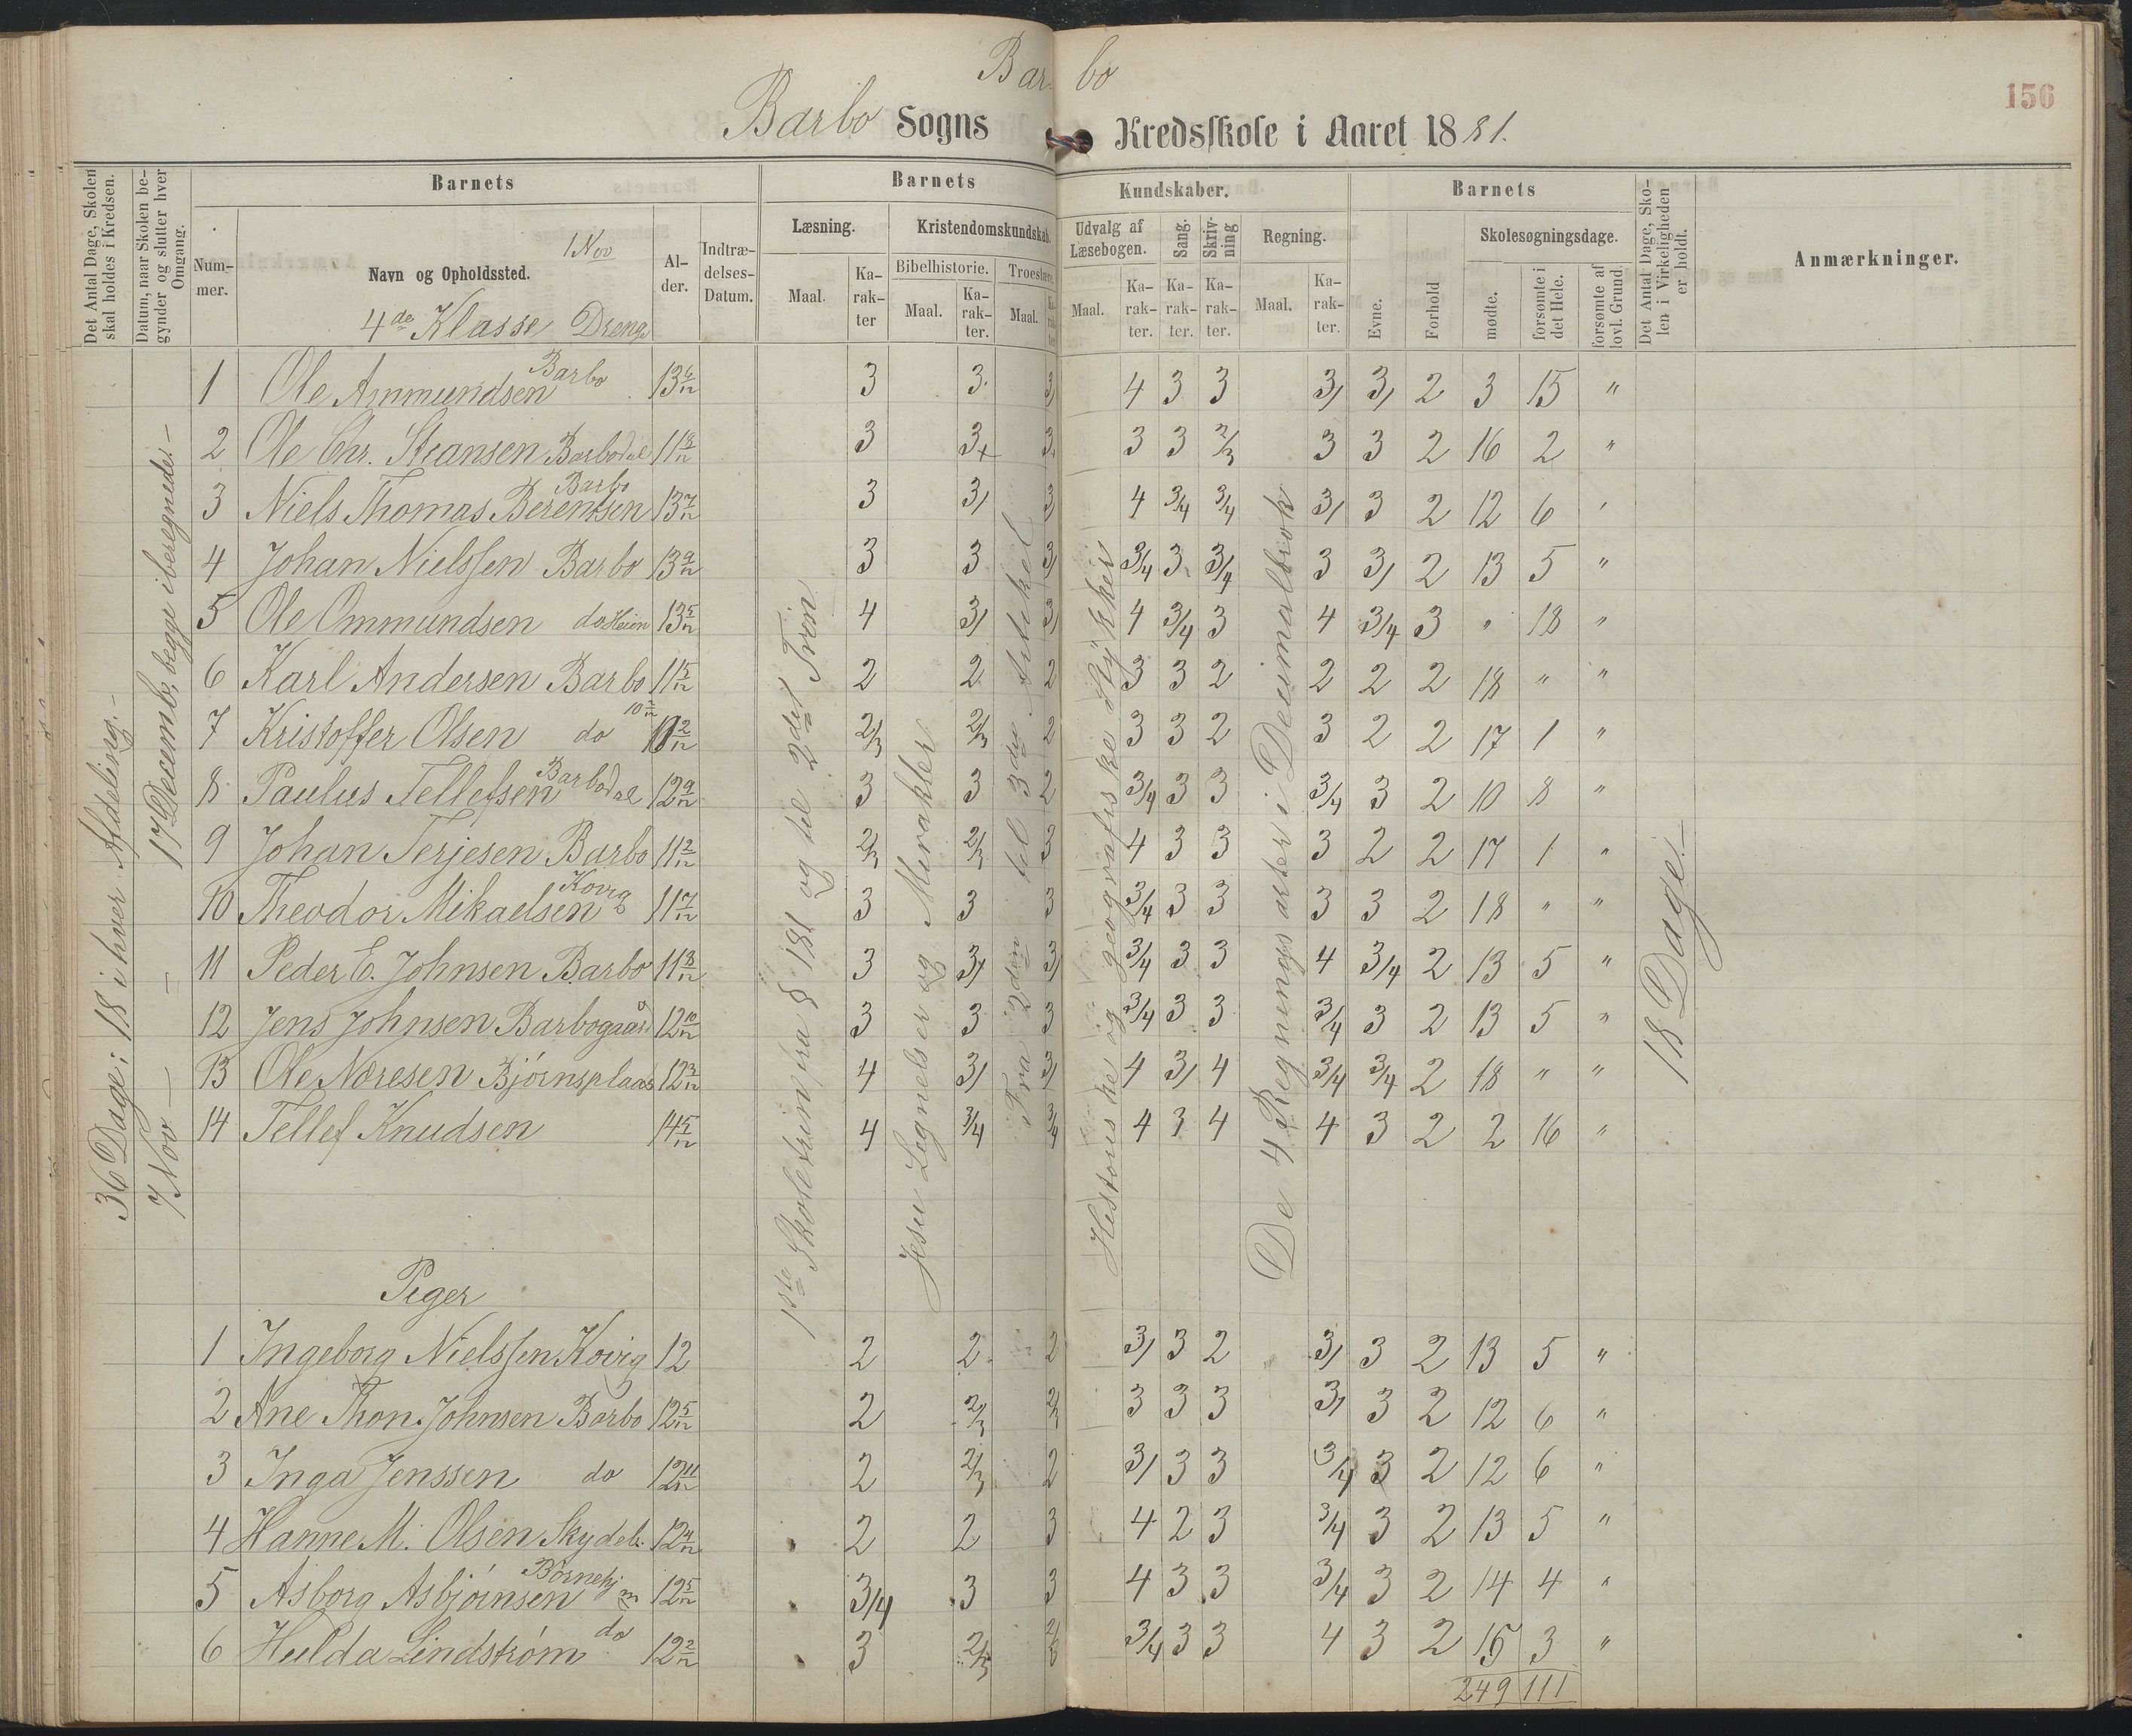 Bar bo
156
Barbo Sogns Kredsskole i Aaret 1881.
Det Antal Dage, Skolen skal holdes i Kredsen.
Datum, naar Skolen begynder og slutter hver Omgang.
Barnets
Barnets
Kundskaber.
Barnets
Det Antal Dage, Skolen i Virkeligheden er holdt.
Anmærkninger.
Nummer.
Navn og Opholdssted.
1 Nov
Alder.
Indtrædelses-Datum.
Læsning.
Kristendomskundskab.
Udvalg af Læsebogen.
Sang.
Skrivning
Regning.
Evne.
Forhold
Skolesøgningsdage.
Maal.
Karakter
Bibelhistorie.
Troeslære.
Maal.
Karakter.
Maal.
Maal.
Karakter.
Karakter.
Karakter.
Maal.
Karakter.
mødte.
forsømte i det Hele.
forsømte af lovl. Grund.
4de Klasse Drenge
36 Dage: 18 i hver Afdeling.-
7 Nov — — 17 Decembr, begge iberegnede.—
1ste Skoletrin fra § 181 og til 2det Trin
Jesu Lignelser og Mirakler
Fra 2den til 3die Artikel
Historiske og geografiske Stykker
De 4 Regningsarter i Decimalbrøk
18 Dage.—
1 Ole Ammundsen Barbo 13 6/12 3 3 3/ 4 3 3 3/ 3/ 2 3 15 "
2 Ole Chr. Stiansen Barbodal 11 8/12 3 3+ 3 3 3 2/3 3 3 2 16 2 "
3 Niels Thomas Berentsen Barbo 13 7/12 3 3/ 3 4 3/4 3/4 3/ 3 2 12 6 "
4 Johan Nielssen Barbo 13 9/12 3 3 3/ 3/4 3 3/4 3 3/ 2 13 5 "
5 Ole Ommundsen do Heien 13 5/12 4 3/ 3/ 4 3/4 3 4 3/4 3 " 18 "
6 Karl Andersen Barbo 11 5/12 2 2 2 3 3 2 2 2 2 18 " "
7 Kristoffer Olsen do 10 2/12 2/3 2/3 2 3 3 2 3 2 2 17 1 "
8 Paulus Tellefsen Barbodal 12 9/12 3 3 2 3/4 3 3 3/4 3 2 10 8 "
9 Johan Terjesen Barbo 11 2/12 2/3 2/3 3 4 3 3 3 2 2 17 1 "
10 Theodor Mikaelsen Kovig 11 7/12 3 3 3 3/4 3 3 3 3 2 18 " "
11 Peder E. Johnsen Barbo 11 8/12 3 3/ 3/ 3/4 3 3 4 3/4 2 13 5 "
12 Jens Johnsen Barbogaard 12 10/12 3 3 3 3/4 3 3 3/4 3 2 13 5 "
13 Ole Næresen Bjørnsplads 12 3/12 4 3/ 3/ 4 3/ 4 3/4 3/4 2 18 " "
14 Tellef Knudsen 14 5/12 4 3/4 3/4 4 3 4 4 3 2 2 16 "
Piger
1 Ingeborg Nielssen Kovig 12 2 2 2 3/ 3 2 3/ 3 2 13 5 "
2 Ane Thon. Johnsen Barbo 12 5/12 2 2/3 2/3 3 3 3 3/ 3 2 12 6 "
3 Inga Jenssen do 12 11/12 2 2/3 2 3/ 3 3 3/4 3 2 12 6 "
4 Hanne M. Olsen Skydeb. 12 4/12 2 2 3 4 2 3 3/4 3 2 13 5 "
5 Asborg Asbjørnsen Børnehjm 12 5/12 3/4 3 3 4 3 3 3/4 3 2 14 4 "
6 Hulda Lindstrøm do 12 2/12 3 2/3 2/3 3/4 3 3 4 3 2 15 3 "
249 111